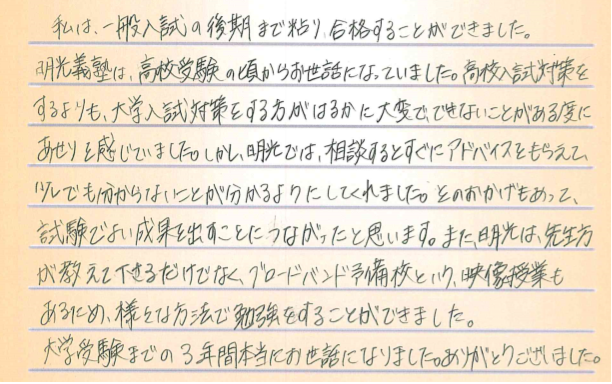 私は、一般入試の後期まで粘り、合格することができました。
明光義塾は、高校受験の頃からお世話になっていました。高校入試対策を
するよりも、大学入試対策をする方がはるかに大変で、できないことがある度に
あせりを感じていました。しかし、明光では、相談するとすぐにアドバイスをもらえて、
少しでも分からないことが分かるようにしてくれました。そのおかげもあって、
試験でよい成果を出すことにつながったと思います。また、明光は、先生方
が教えて下さるだけでなく、ブロードバンド予備校という、映像授業も
あるため、様々な方法で勉強をすることができました。
大学受験までの3年間本当にお世話になりました。ありがとうございました。